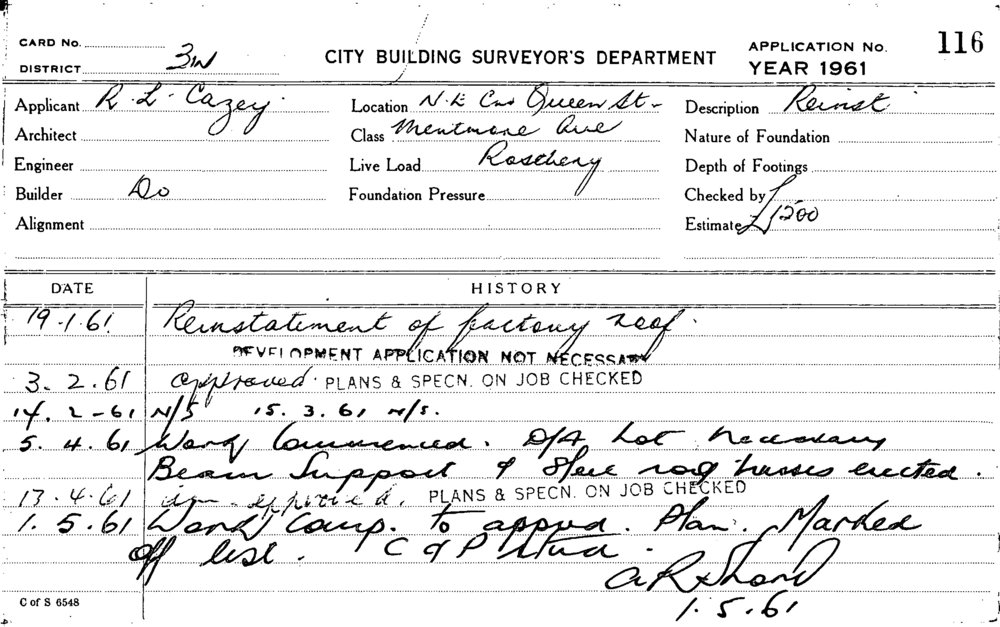 CARD No.
DISTRICT 3W
CITY BUILDING SURVEYOR'S DEPARTMENT
APPLICATION No. 116
YEAR 1961
Applicant R. L. Cazey.
Location N.E Cnr Queen St-
Description Reinst
Architect
Class Mentmore Ave
Nature of Foundation
Engineer
Live Load Rosebery
Depth of Footings
Builder Do
Foundation Pressure
Checked by
Alignment
Estimate £1200
DATE HISTORY
19.1.61 Reinstatement of factory roof.
DEVELOPMENT APPLICATION NOT NECESSARY
3.2.61 approved. PLANS & SPECN. ON JOB CHECKED
14.2-61 N/S 15.3.61 N/S.
5.4.61 Work Commenced. D/A not necessary
Beam Support & Steel roof trusses erected.
13.4.61 approved. PLANS & SPECN. ON JOB CHECKED
1.5.61 Work Comp. to apprvd. Plan. Marked
off list. C of P
1.5.61
C of S 6548